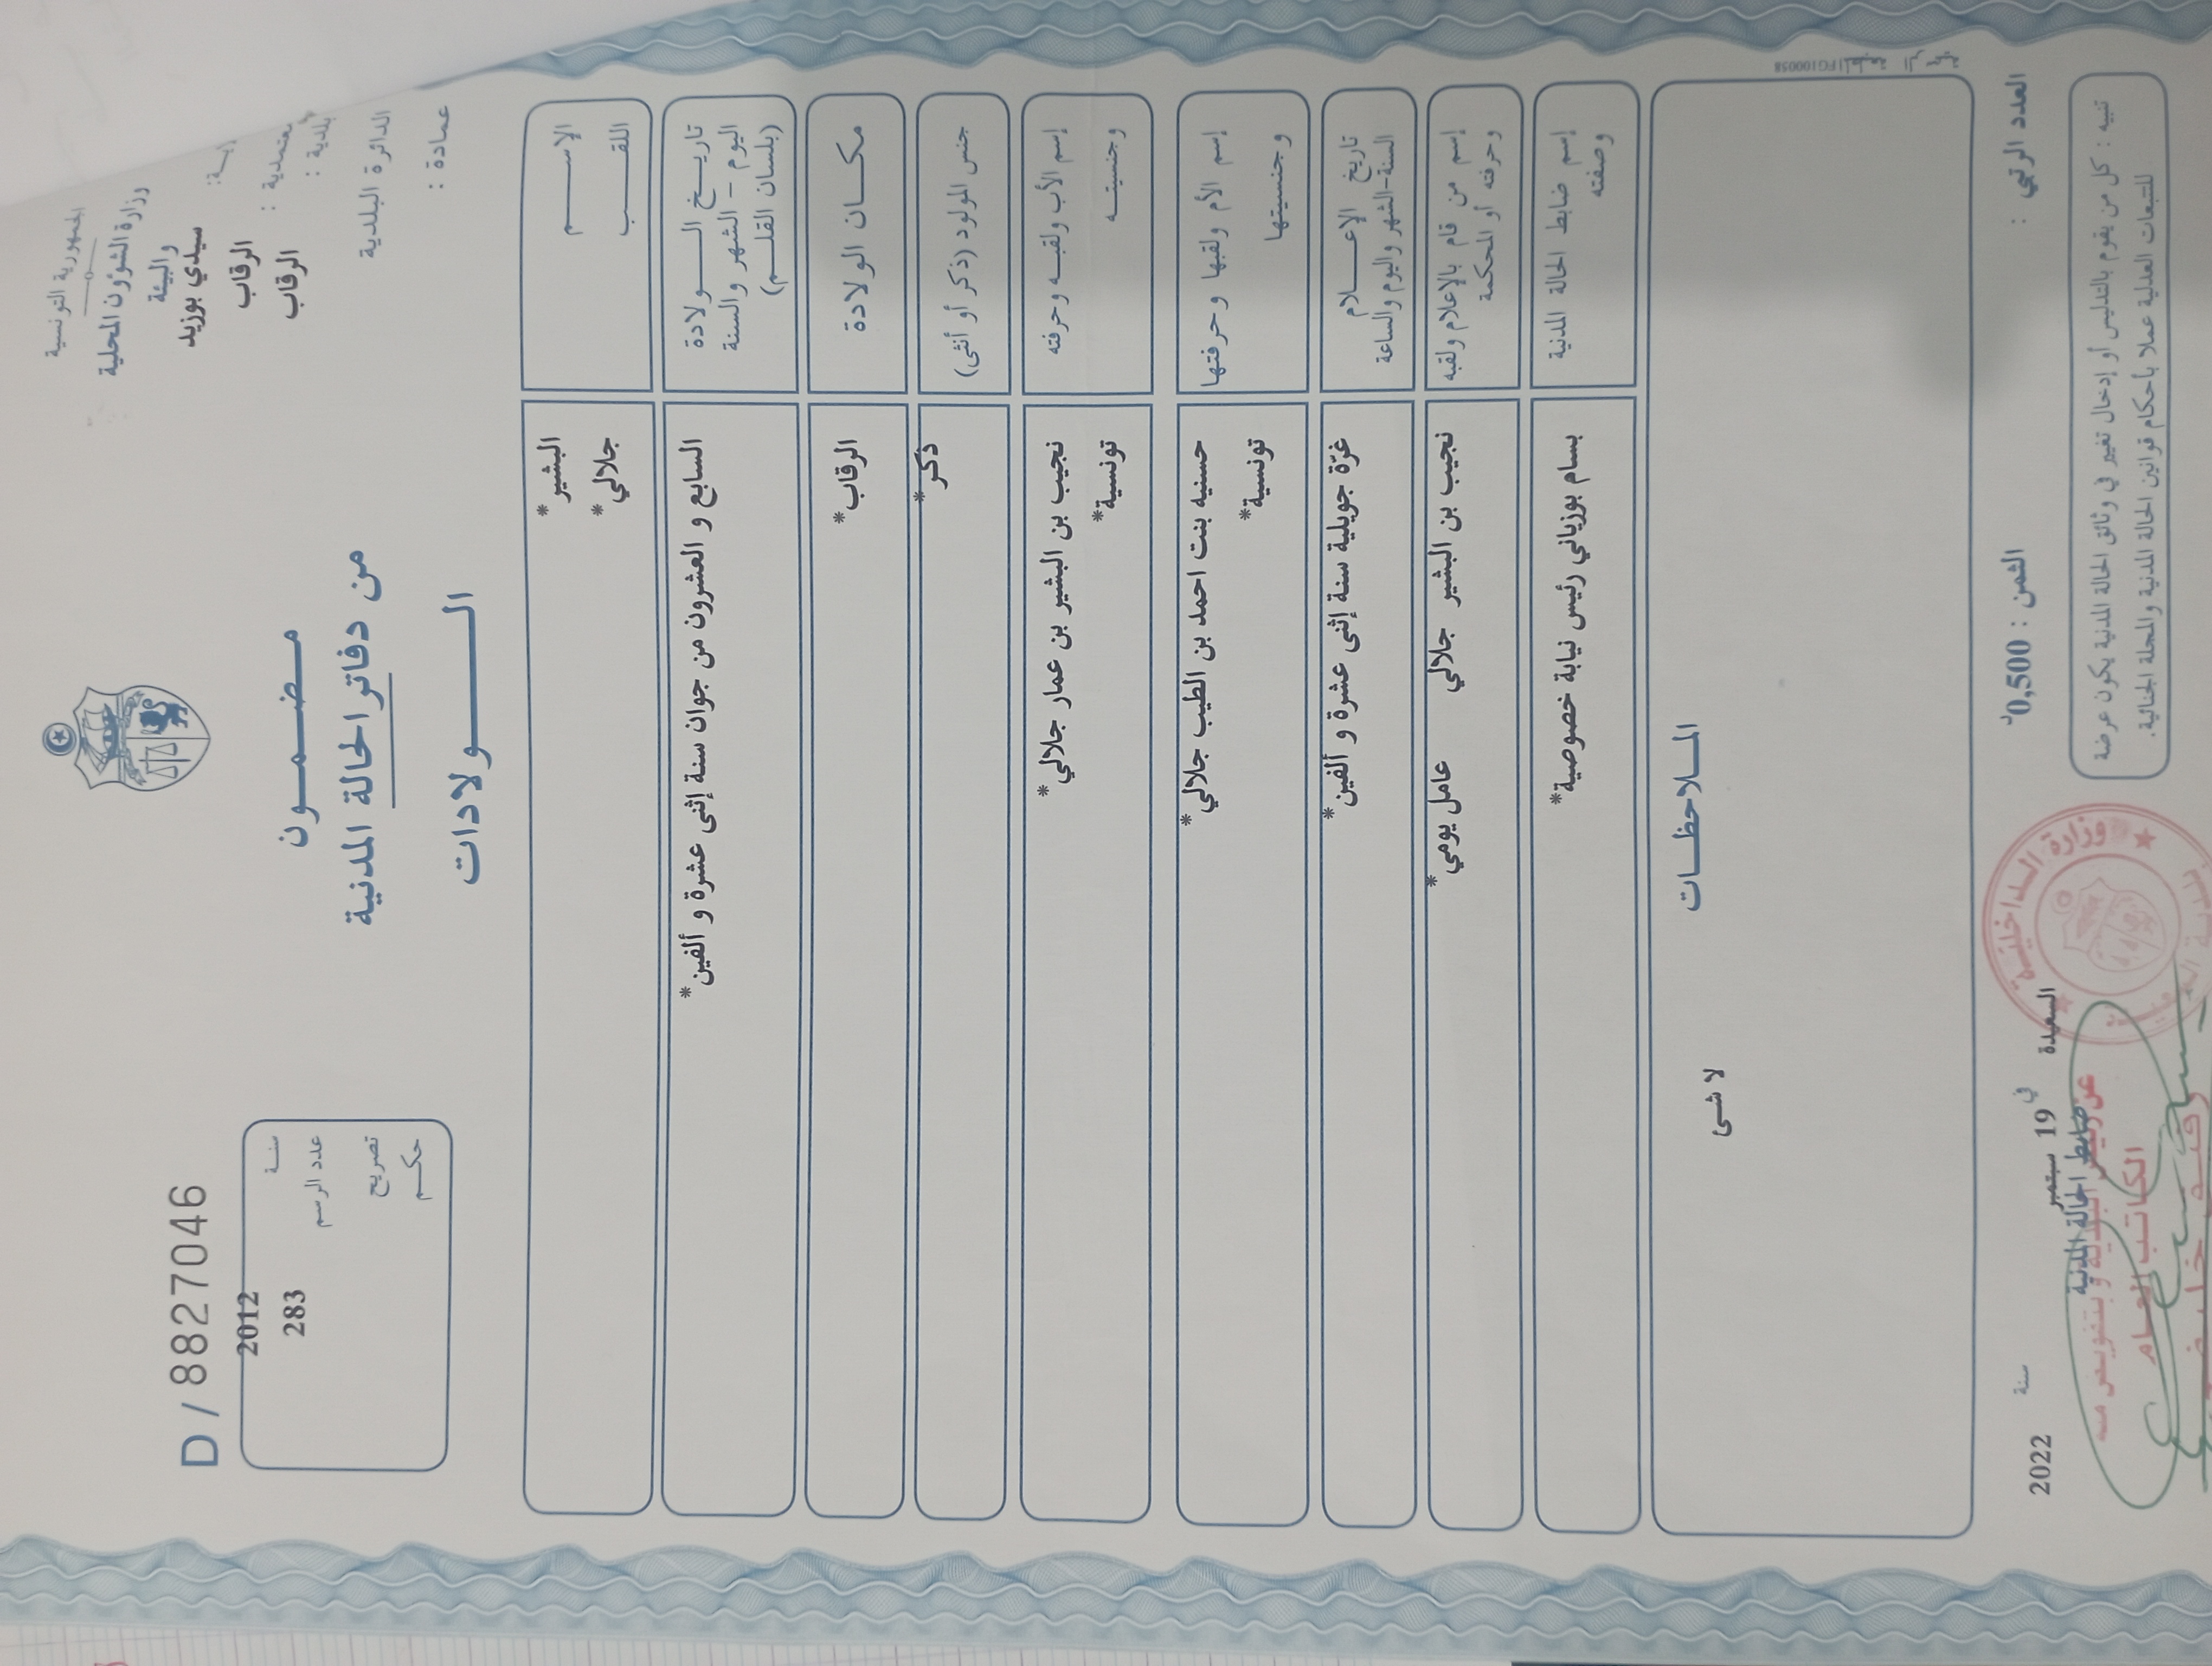 الجمهورية التونسية
وزارة الشؤون المحلية
والبيئة
سيدي بوزيد
معتمدية : الرقاب
بلدية : الرقاب
الدائرة البلدية
عمادة :
مضمون
من دفاتر الحالة المدنية
الولادات
D / 8827046
سنة 2012
عدد الرسم 283
تصريح
حكم
الاسم البشير*
اللقب جلالي*
تاريخ الولادة السابع و العشرون من جوان سنة إثنى عشرة و ألفين*
اليوم - الشهر والسنة
(بلسان القلم)
مكان الولادة الرقاب*
جنس المولود (ذكر أو أنثى) ذكر*
إسم الأب ولقبه وحرفته نجيب بن البشير بن عمار جلالي*
وجنسيته تونسية*
إسم الأم ولقبها وحرفتها حسنيه بنت احمد بن الطيب جلالي*
وجنسيتها تونسية*
تاريخ الإعلام غرّة جويلية سنة إثنى عشرة و ألفين*
السنة-الشهر واليوم والساعة
إسم من قام بالإعلام ولقبه نجيب بن البشير جلالي عامل يومي*
وحرفته أو المحكمة
إسم ضابط الحالة المدنية بسام بوزياني رئيس نيابة خصوصية*
وصفته
الملاحظات
لا شى
المطبعة الرسمية FG100058
العدد الرتبي :
الثمن : 0,500د
السعيدة في 19 سبتمبر سنة 2022
ضابط الحالة المدنية
تنبيه : كل من يقوم بالتدليس أو إدخال تغيير في وثائق الحالة المدنية يكون عرضة
للتتبعات العدلية عملا بأحكام قوانين الحالة المدنية والمجلة الجنائية.
وزارة الداخلية
عن رئيس البلدية و بتفويض منه
الكاتب العام